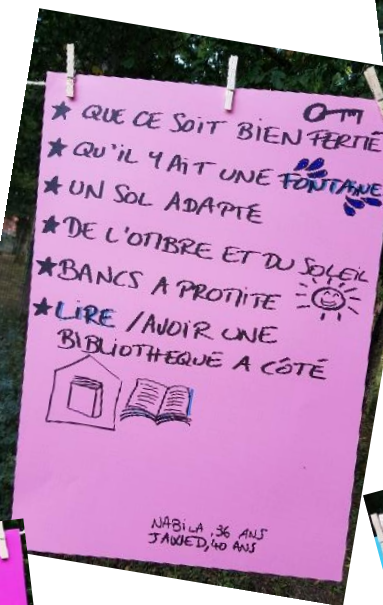 ★ QUE CE SOIT BIEN FERMÉ
★ QU'IL Y AIT UNE FONTAINE
★ UN SOL ADAPTÉ
★ DE L'OMBRE ET DU SOLEIL
★ BANCS A PROXIMITE
★ LIRE / AVOIR UNE
BIBLIOTHEQUE A CÔTÉ
NABILA, 36 ANS
JAWED, 40 ANS